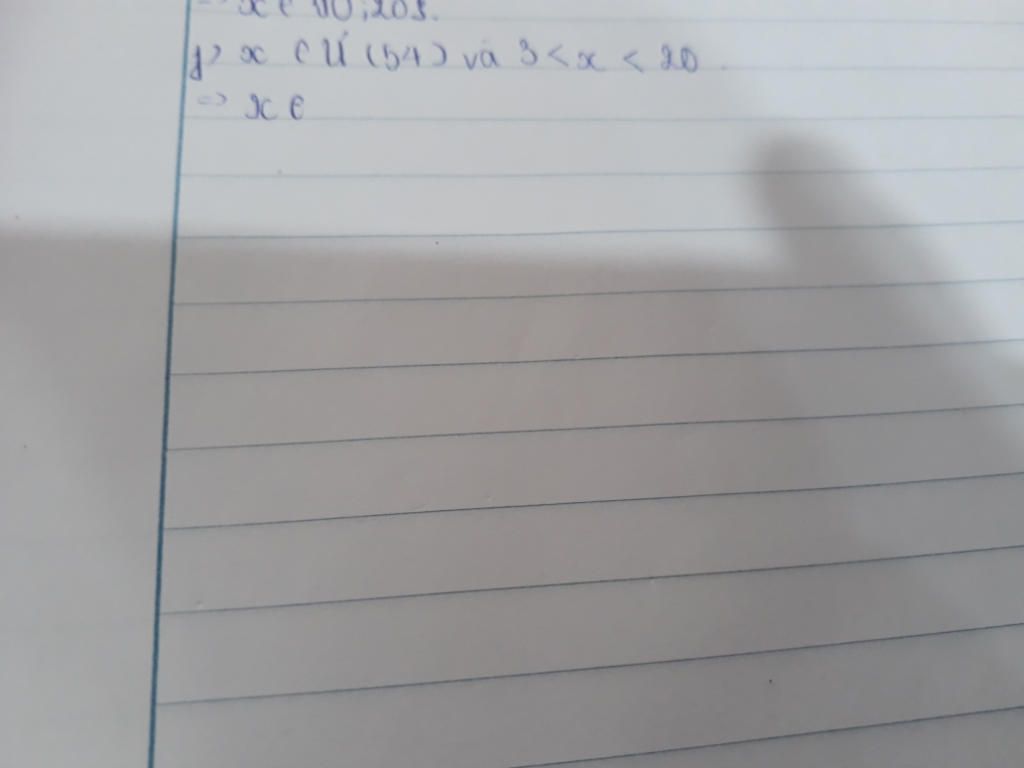 => x ∈ {10; 20}.
f) x ∈ Ư (54) và 3 < x < 20.
=> x ∈